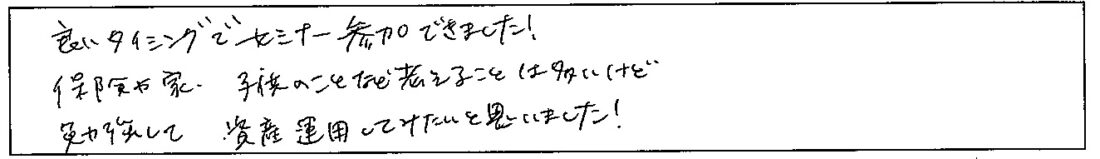 良いタイミングでセミナー参加できました!
保険や家、子供のことなど考えることは多いけど
勉強して 資産運用してみたいと思いました!